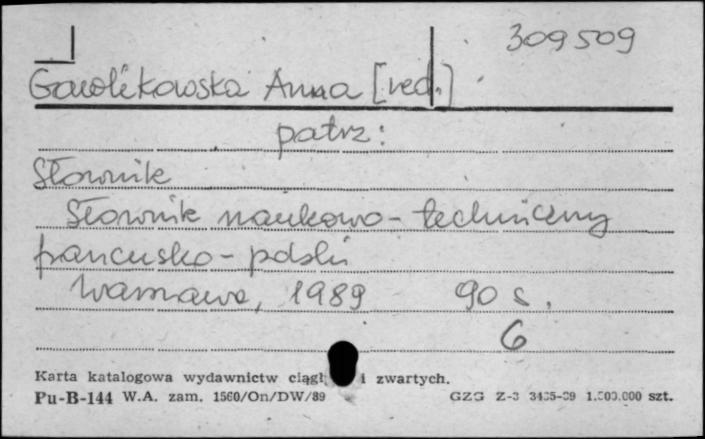 309509
Gawlikowska Anna [red.]
patrz:
Słownik
Słownik naukowo-techniczny
francusko-polski
Warszawa, 1989 90 s.
6
Karta katalogowa wydawnictw ciągł i zwartych.
Pu-B-144 W.A. zam. 1560/On/DW/89 GZG Z-3 szt.